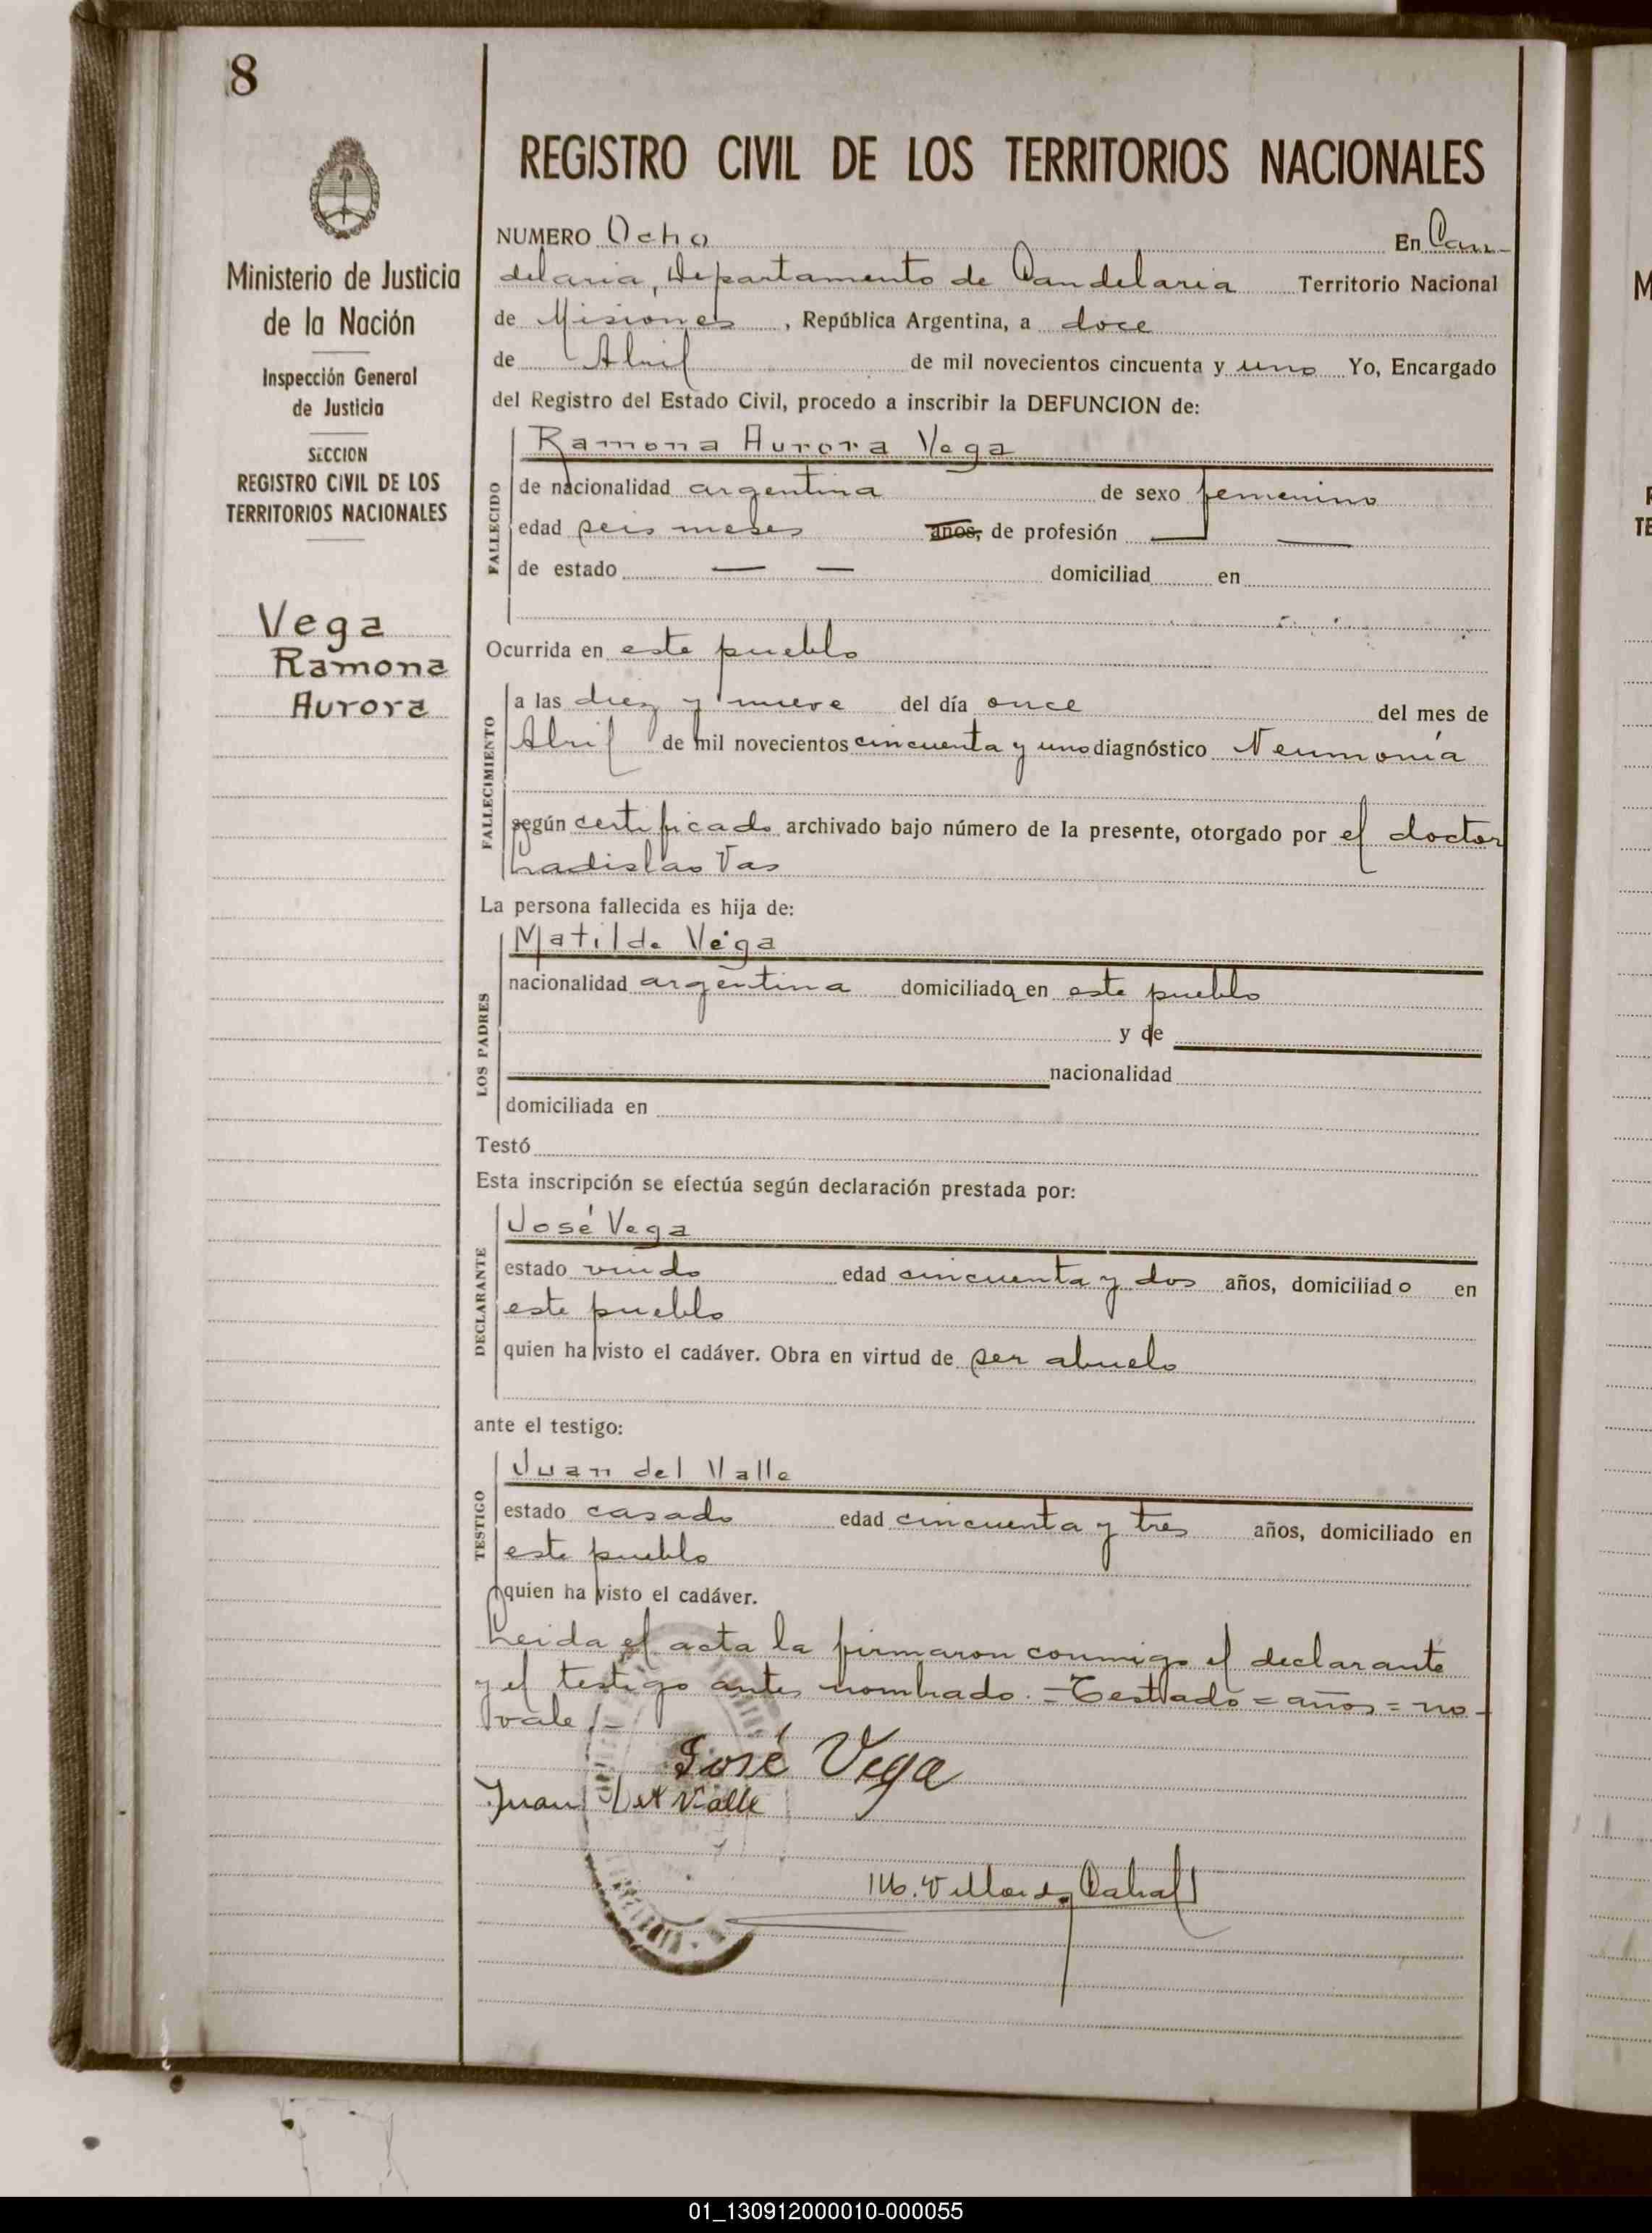 8
Ministerio de Justicia
de la Nación
Inspección General
de Justicia
SECCION
REGISTRO CIVIL DE LOS
TERRITORIOS NACIONALES
Vega
Ramona
Aurora
REGISTRO CIVIL DE LOS TERRITORIOS NACIONALES
NUMERO Ocho En Can-
delaria, Departamento de Candelaria Territorio Nacional
de Misiones, República Argentina, a doce
de Abril de mil novecientos cincuenta y uno Yo, Encargado
del Registro del Estado Civil, procedo a inscribir la DEFUNCION de:
Ramona Aurora Vega
FALLECIDO
de nacionalidad argentina de sexo femenino
edad seis meses años, de profesión —— ——
de estado — — domiciliad en
Ocurrida en este pueblo
FALLECIMIENTO
a las diez y nueve del día once del mes de
Abril de mil novecientos cincuenta y uno diagnóstico Neumonía
según certificado archivado bajo número de la presente, otorgado por el doctor
Ladislao Vas
La persona fallecida es hija de:
LOS PADRES
Matilde Vega
nacionalidad argentina domiciliada en este pueblo
y de
nacionalidad
domiciliada en
Testó
Esta inscripción se efectúa según declaración prestada por:
DECLARANTE
José Vega
estado viudo edad cincuenta y dos años, domiciliado en
este pueblo
quien ha visto el cadáver. Obra en virtud de ser abuelo
ante el testigo:
TESTIGO
Juan del Valle
estado casado edad cincuenta y tres años, domiciliado en
este pueblo
quien ha visto el cadáver.
Leida el acta la firmaron conmigo el declarante
y el testigo antes nombrado.=Testado=años=no-
vale/-
José Vega
Juan Del Valle
M. Cabral
M
TE
01_130912000010-000055